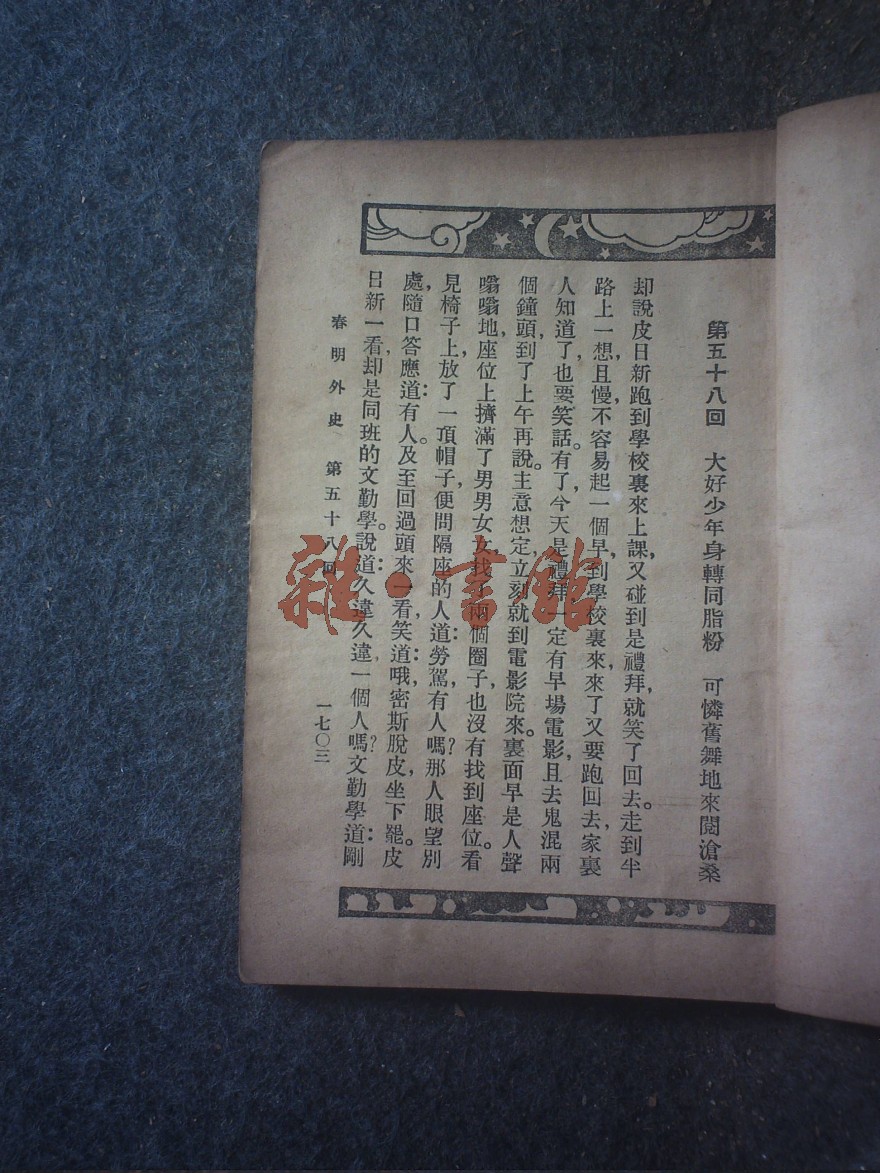 第五十八回　大好少年身轉同脂粉　可憐舊舞地來閱滄桑
却說皮日新跑到學校裏來上課，又碰到是禮拜，就笑了回去。走到半
路上一想，且慢，不容易起一個早，到學校裏來，來了又要跑回去，家裏
人知道了，也要笑話。有了，今天是禮拜，一定有早場電影，且去鬼混兩
個鐘頭，到了上午再說。主意想定，立刻就到電影院來。裏面早是人聲
嗡嗡地，座位上擠滿了男男女女，找了兩個圈子，也沒有找到座位。看
見椅子上放了一頂帽子，便問隔座的人道：勞駕，有人嗎？那人眼望別
處，隨口答應道：有人。及至回過頭來一看，笑道：哦，密斯脫皮，坐下罷。皮
日新一看，却是同班的文勤學。說道：久違久違，一個人嗎？文勤學道：剛
春明外史　第五十八回
一七〇三
雜·書館